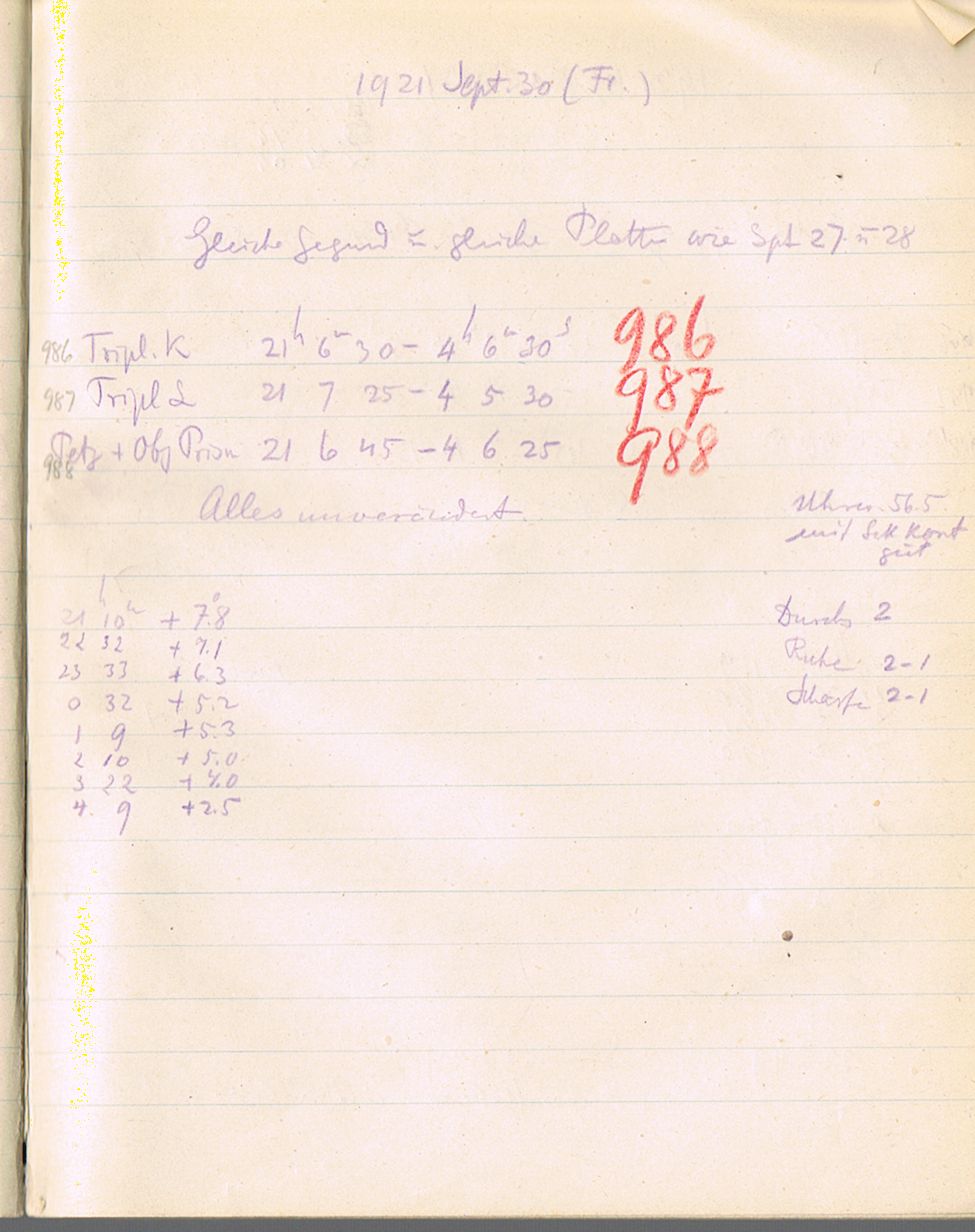 1921 Sept. 30 (Fr.)
Gleiche Gegend u. gleiche Platten wie Sept 27. u 28
986 Tripl. K 21ʰ 6ᵐ 30 – 4ʰ 6ᵐ 30ˢ 986
987 Tripl L 21 7 25 – 4 5 30 987
988 Petz + Obj Prism 21 6 45 – 4 6 25 988
Alles unverändert.
Uhrver. 56.5
mit Sek Kont
gut
21ʰ 10ᵐ + 7.°8
22 32 + 7.1
23 33 + 6.3
0 32 + 5.2
1 9 + 5.3
2 10 + 5.0
3 22 + 4.0
4. 9 + 2.5
Durchs 2
Ruhe 2-1
Schärfe 2-1